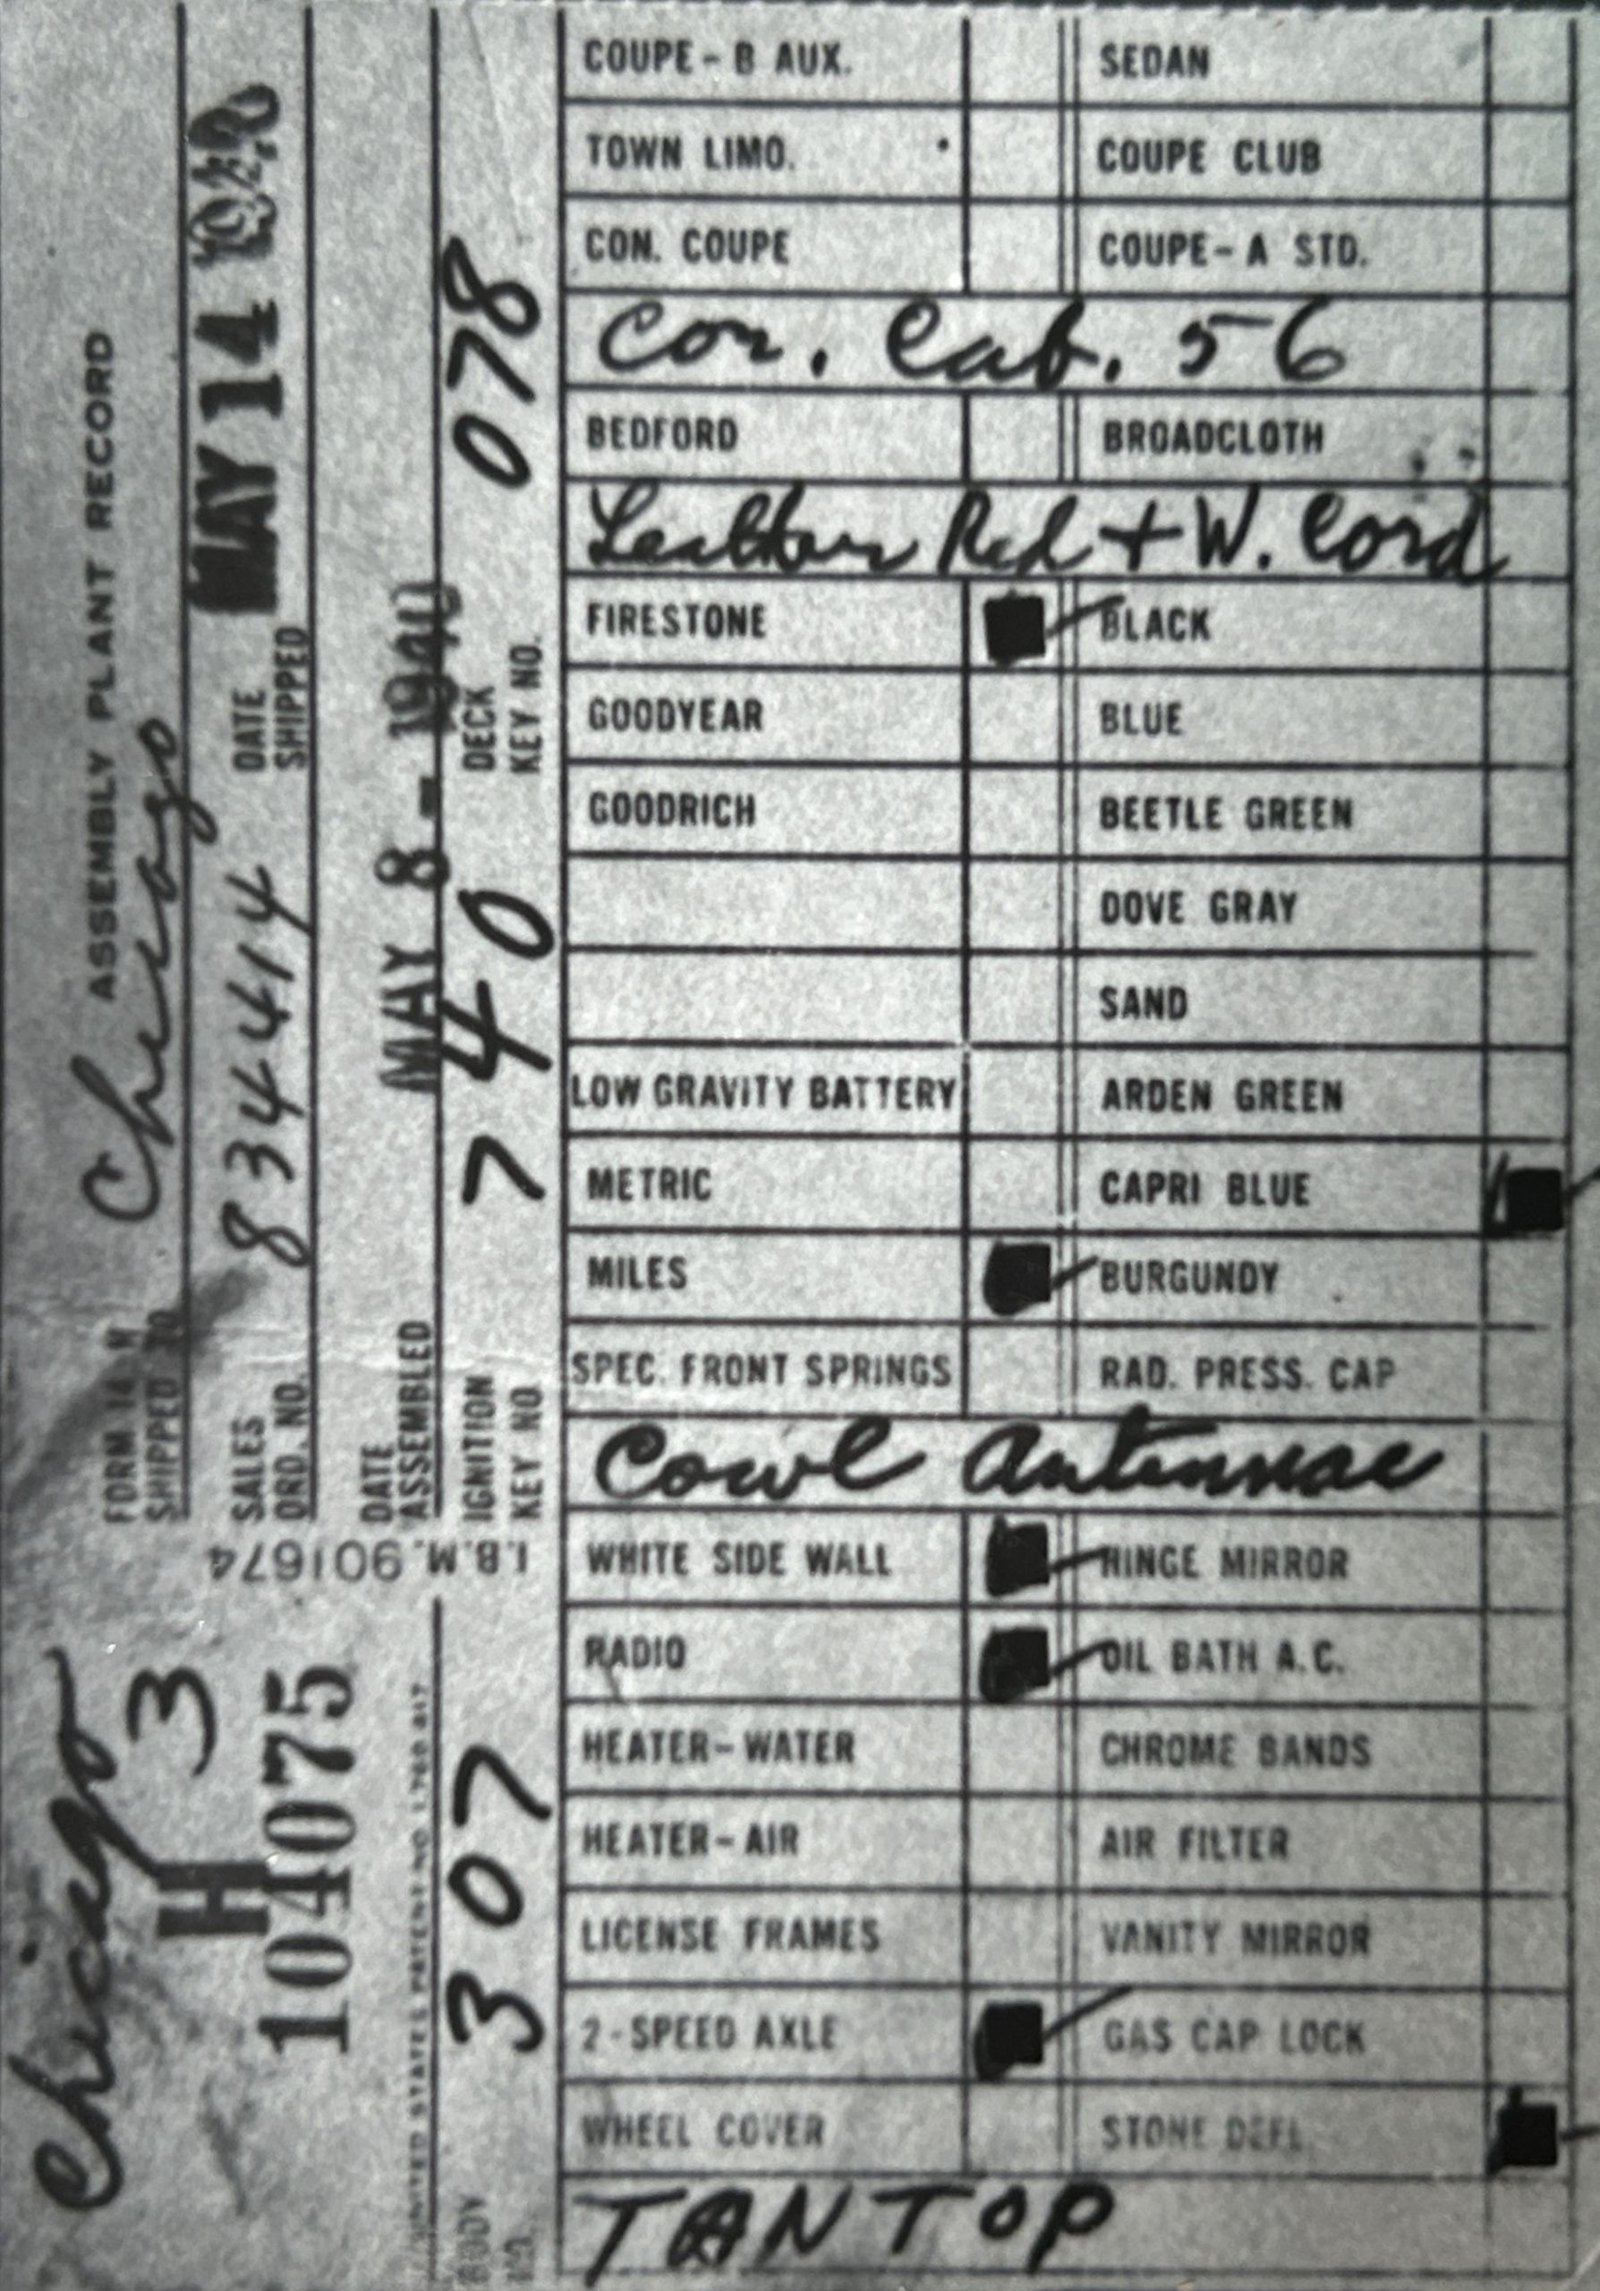 FORM 14 H ASSEMBLY PLANT RECORD
SHIPPED TO Chicago
SALES ORD. NO. 834414 DATE SHIPPED MAY 14 1940
DATE ASSEMBLED MAY 8 - 1940
IGNITION KEY NO. 740 DECK KEY NO. 078
Chicago
H 3
104075
I.B.M. 901674
UNITED STATES PATENT NO. 1,780,817
BODY NO. 307
COUPE - B AUX. SEDAN
TOWN LIMO. COUPE CLUB
CON. COUPE COUPE - A STD.
Con. Cab. 56
BEDFORD BROADCLOTH
Leather Red + W. Cord
FIRESTONE BLACK
GOODYEAR BLUE
GOODRICH BEETLE GREEN
DOVE GRAY
SAND
LOW GRAVITY BATTERY ARDEN GREEN
METRIC CAPRI BLUE
MILES BURGUNDY
SPEC. FRONT SPRINGS RAD. PRESS. CAP
Cowl Antennae
WHITE SIDE WALL HINGE MIRROR
RADIO OIL BATH A.C.
HEATER - WATER CHROME BANDS
HEATER - AIR AIR FILTER
LICENSE FRAMES VANITY MIRROR
2 - SPEED AXLE GAS CAP LOCK
WHEEL COVER STONE DEFL.
TAN TOP